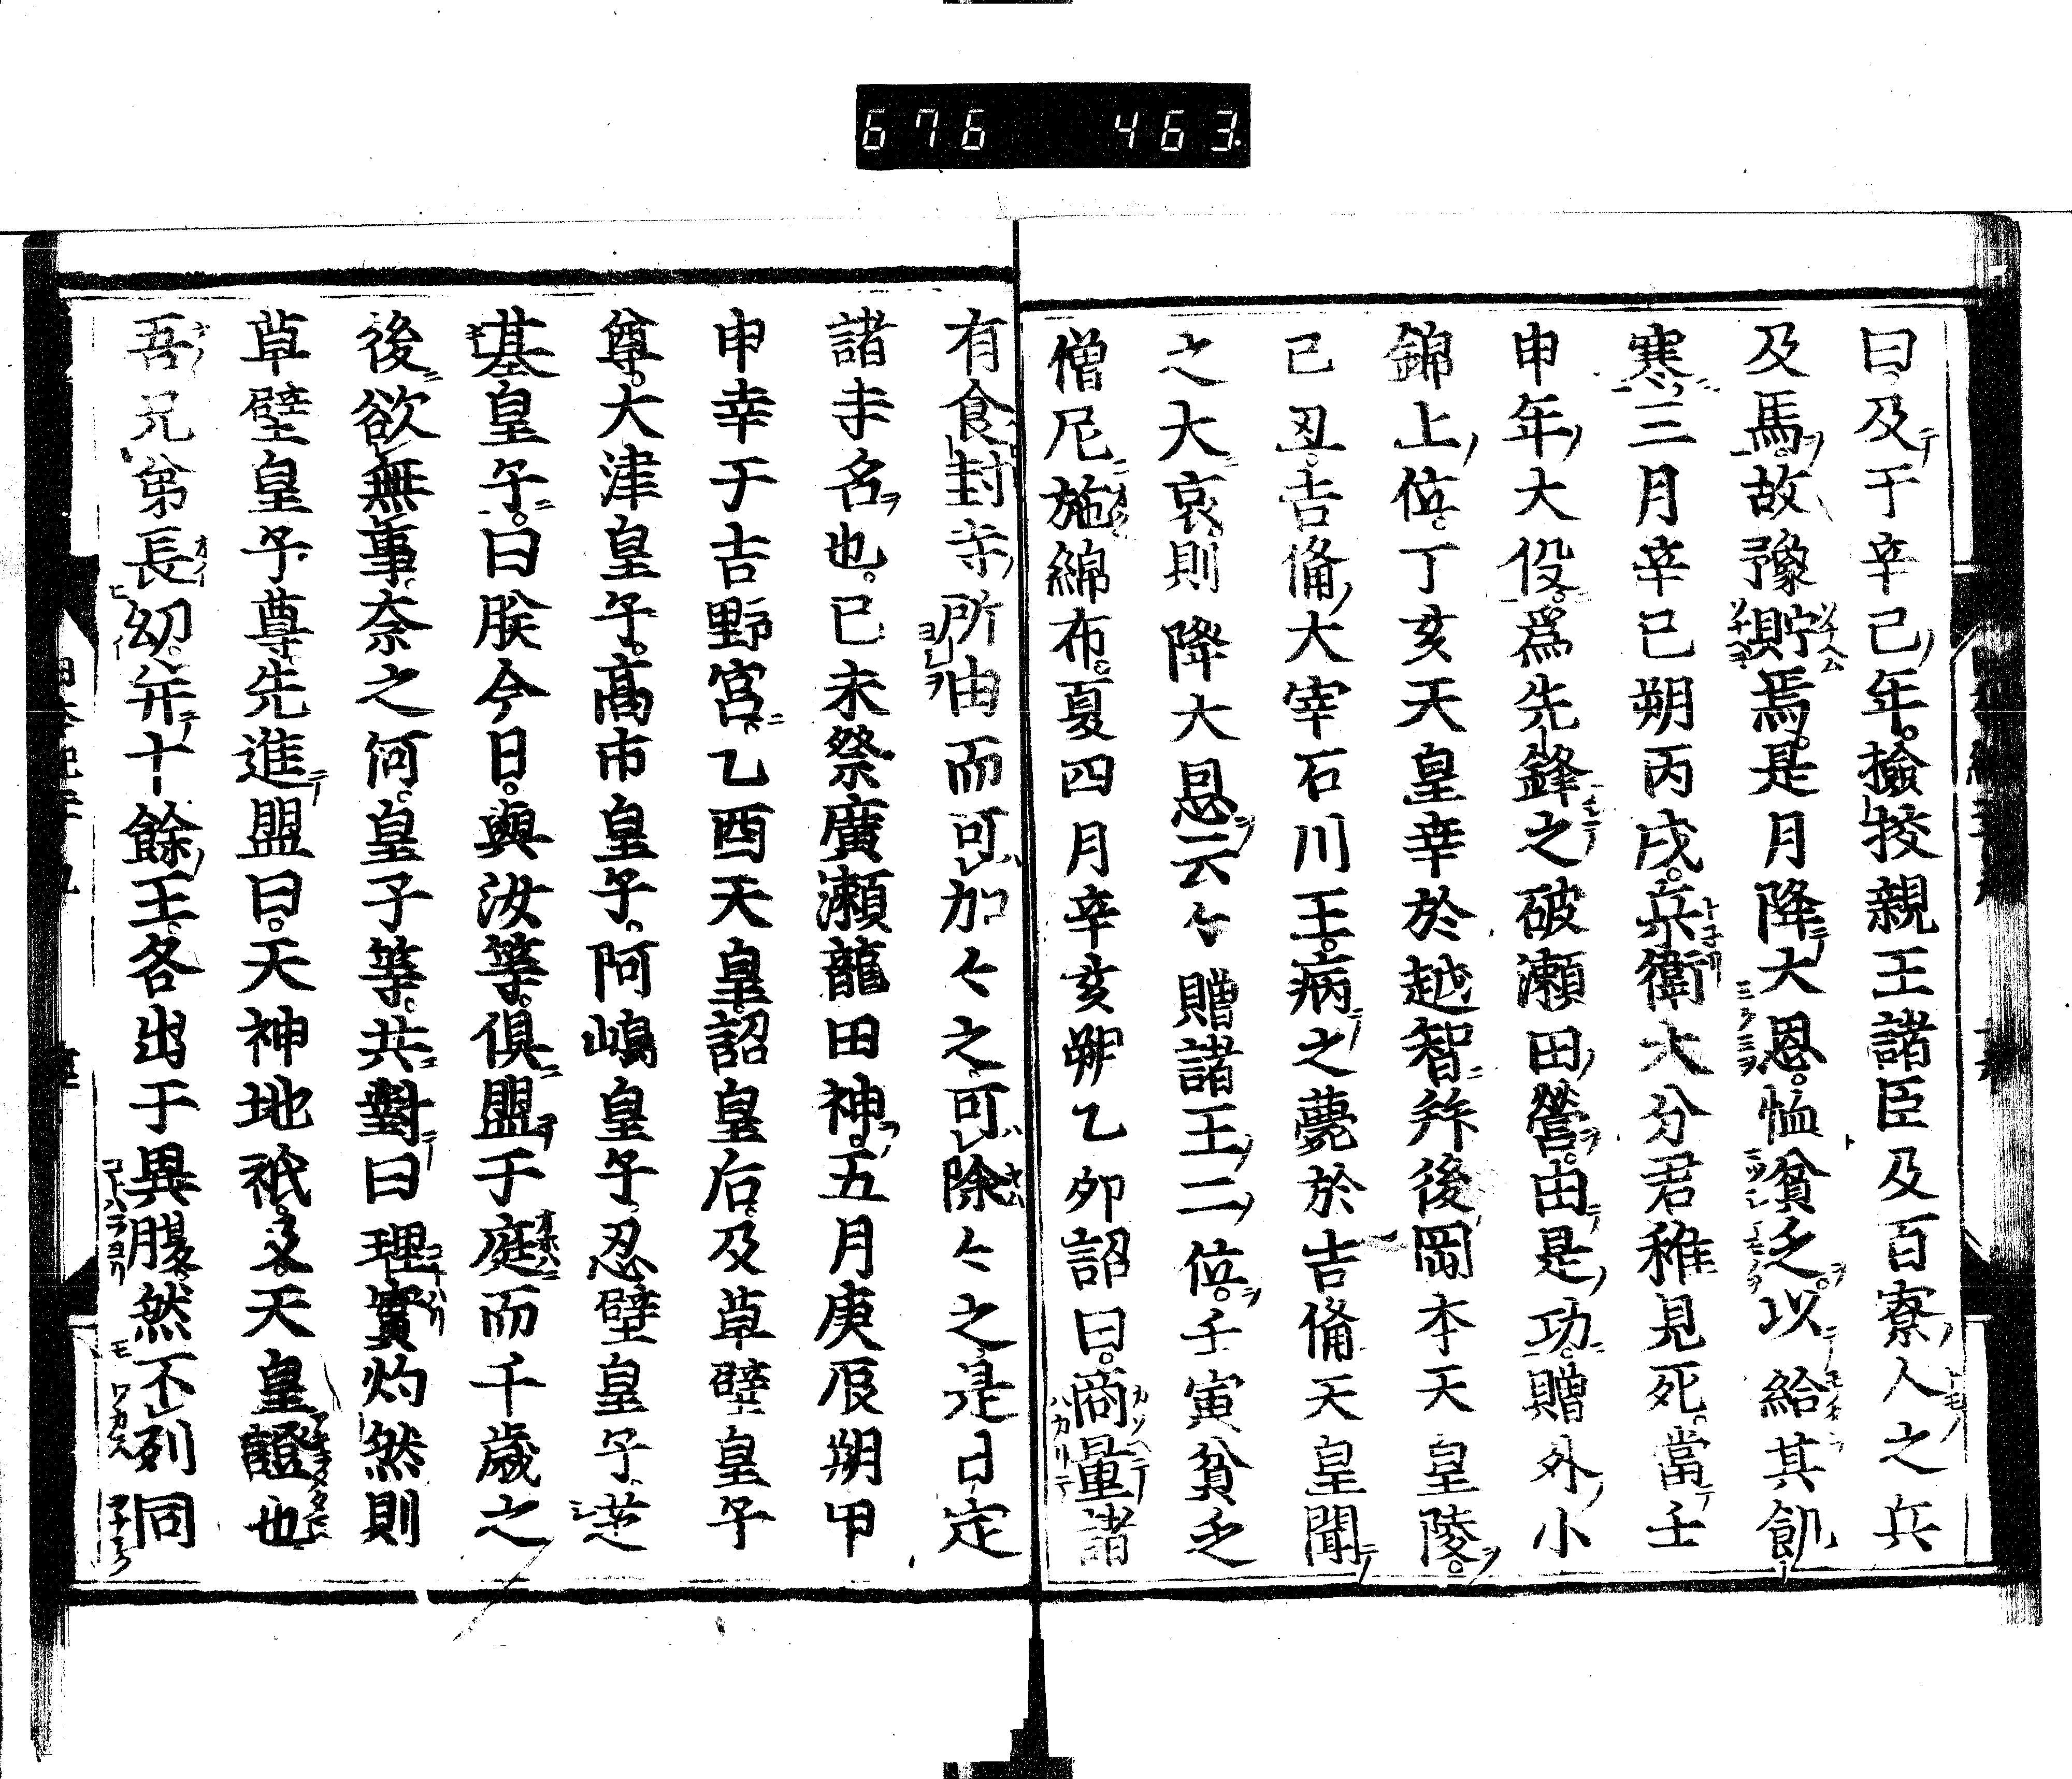 676 463
曰及于辛己年撿挍親王諸臣及百寮人之兵
及馬故豫貯焉是月降大恩恤貧乏以給其飢
寒三月辛已朔丙戌兵衛大分君稚見死當壬
申年大役爲先鋒之破瀬田營由是功贈外小
錦上位丁亥天皇幸於越智拜後岡本天皇陵
己丑吉備大宰石川王病之薨於吉備天皇聞
之大哀則降大恩云々贈諸王二位壬寅貧乏
僧尼施綿布夏四月辛亥朔乙夘詔曰商量諸
有食封寺所由而可加々之可除々之是日定
諸寺名也已未祭廣瀬龍田神五月庚辰朔甲
申幸于吉野宮乙酉天皇詔皇后及草壁皇子
尊大津皇子髙市皇子阿嶋皇子忍壁皇子芝
基皇子曰朕今日與汝等俱盟于庭而千歳之
後欲無事奈之何皇子等共對曰理實灼然則
草壁皇子尊先進盟曰天神地祇及天皇證也
吾兄弟長幼并十餘王各出于異腹然不列同